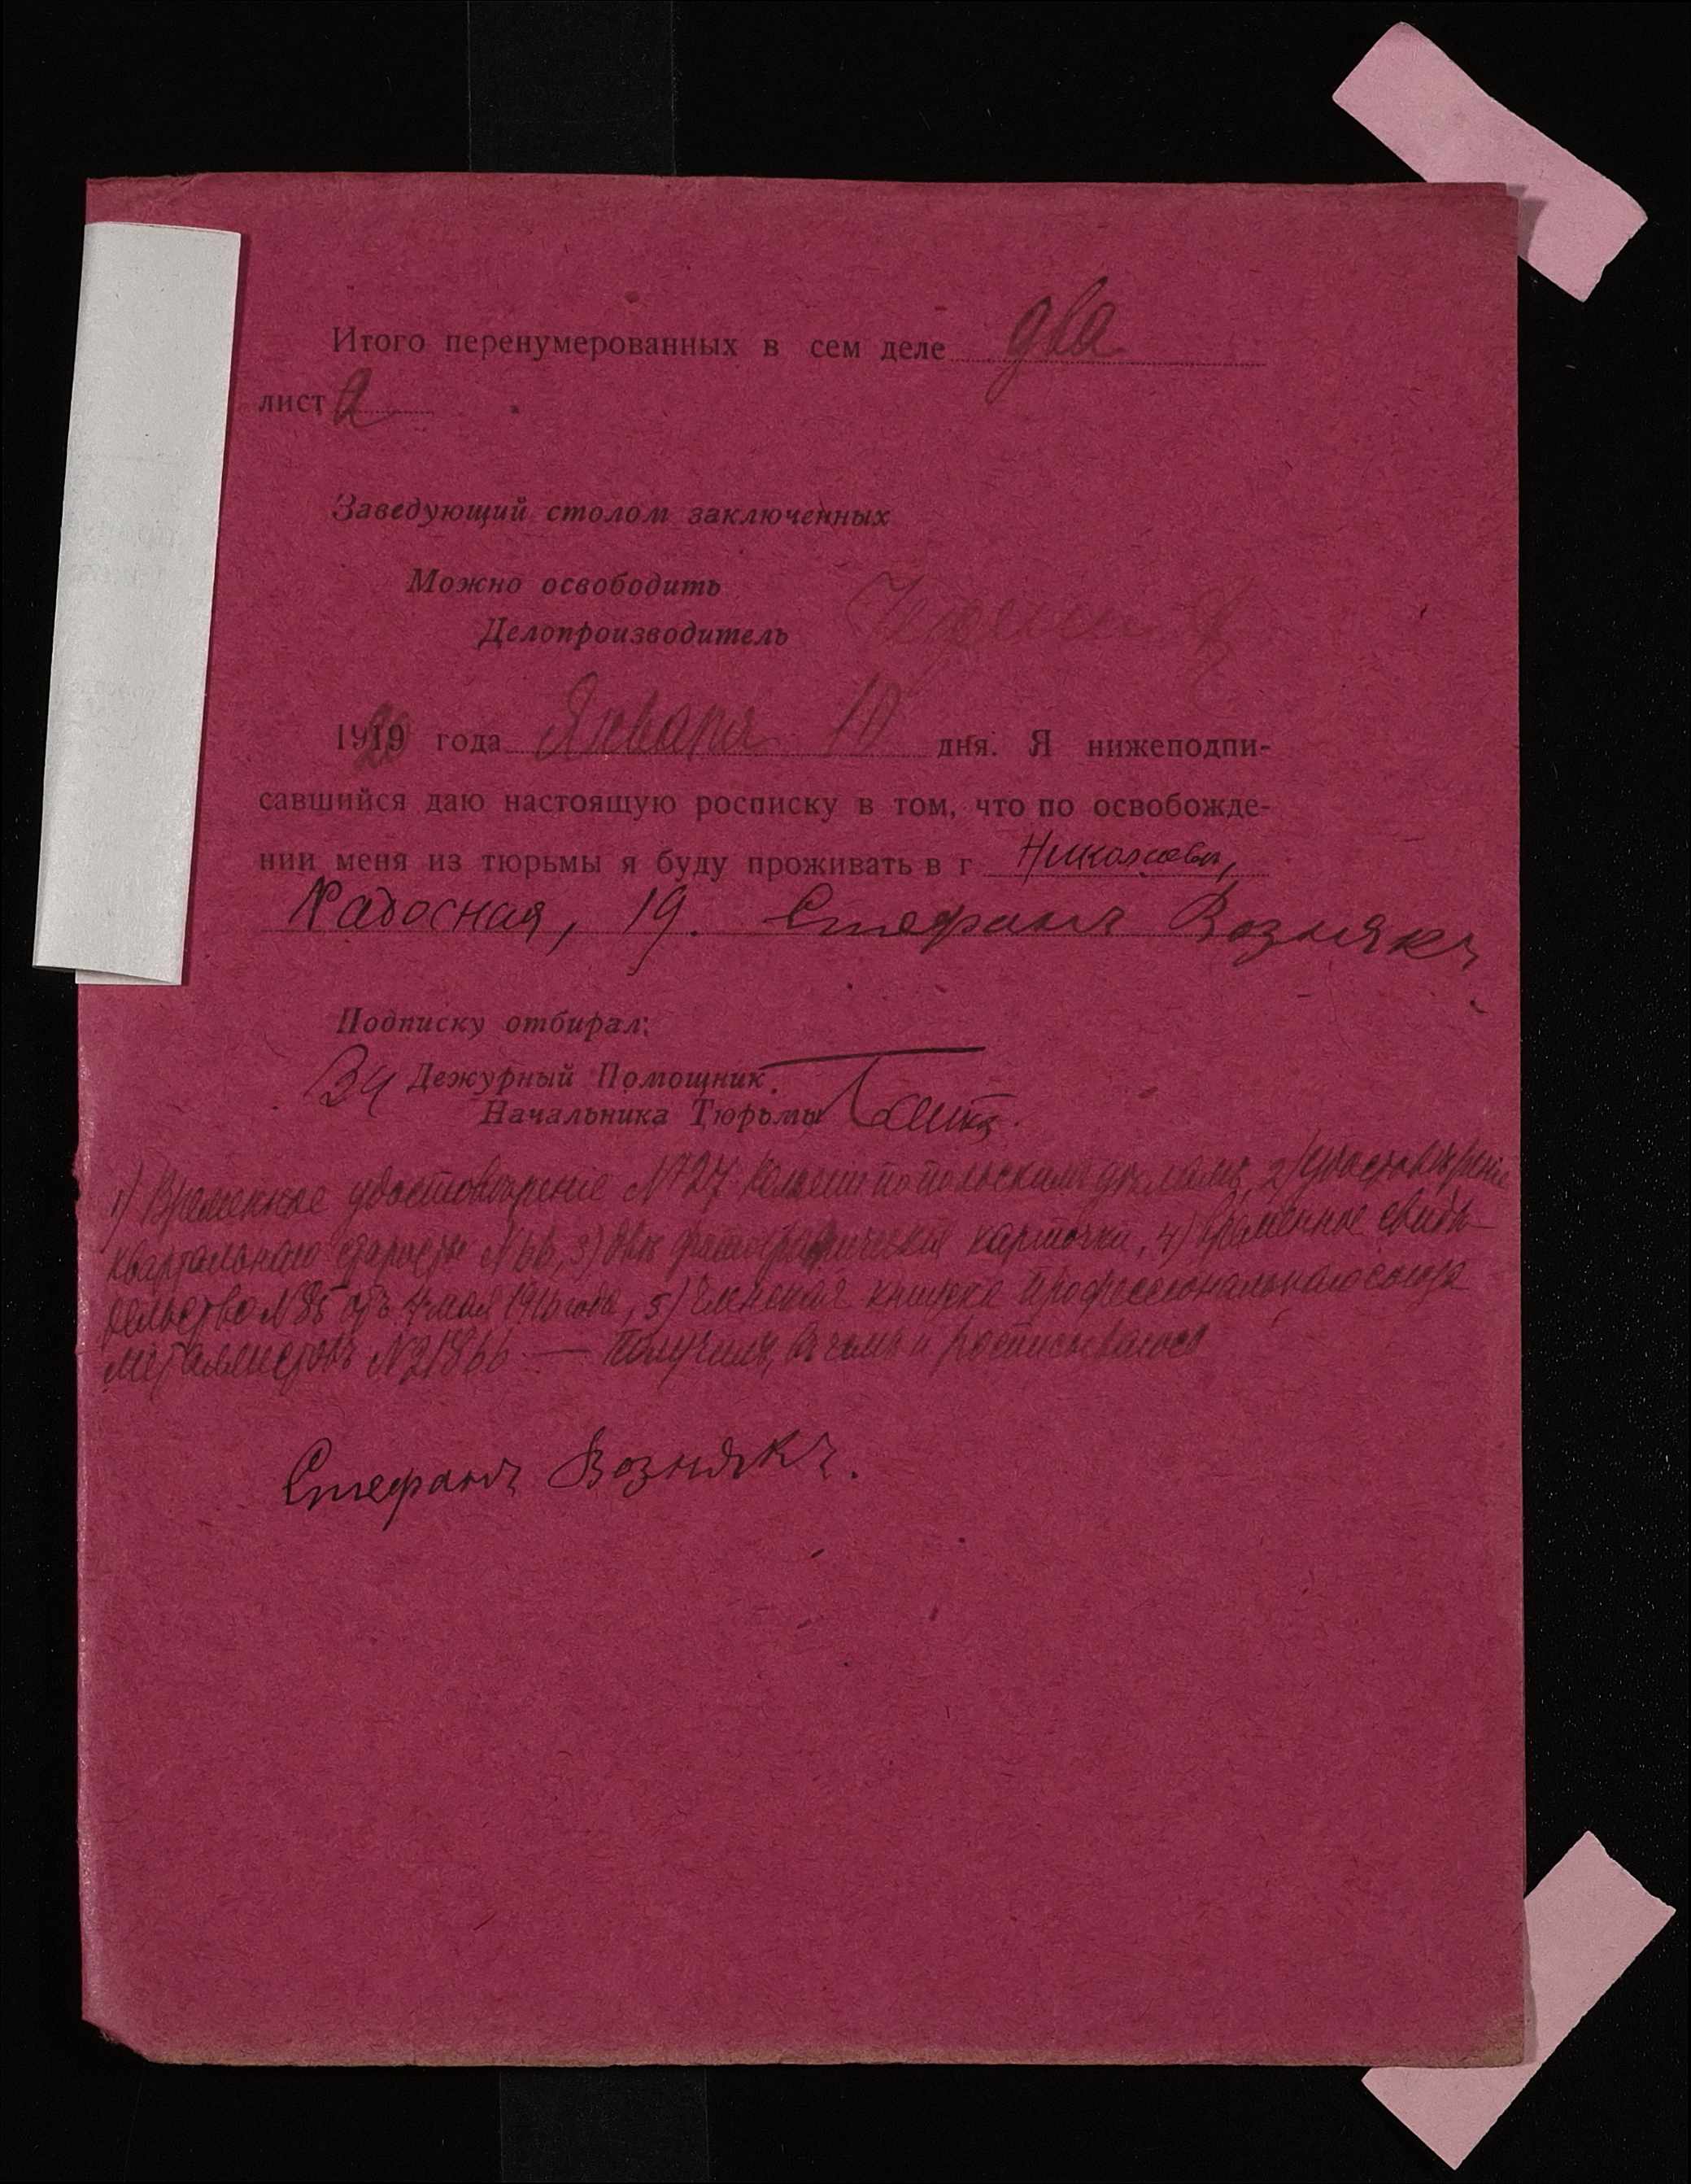 Итого перенумерованных в сем деле два
листа
Заведующий столом заключенных
Можно освободить
Делопроизводитель
1920 года Января 10 дня. Я нижеподпи-
савшийся даю настоящую росписку в том, что по освобожде-
нии меня из тюрьмы я буду проживать в г Николаевъ,
19. Стефанъ Вознякъ
Подписку отбирал:
За Дежурный Помощник
Начальника Тюрьмы
1) Временное удостовѣреніе №27 по польскимъ дѣламъ, 2) Удостовѣреніе
квартальнаго старосты №66, 3) двѣ фотографическія карточки, 4) временное свидѣ-
тельство №85 отъ 4 мая 1916 года, 5) Членская книжка профессіональнаго союза
металлистовъ №21866 — Получилъ, въ чемъ и росписываюсь
Стефанъ Вознякъ.